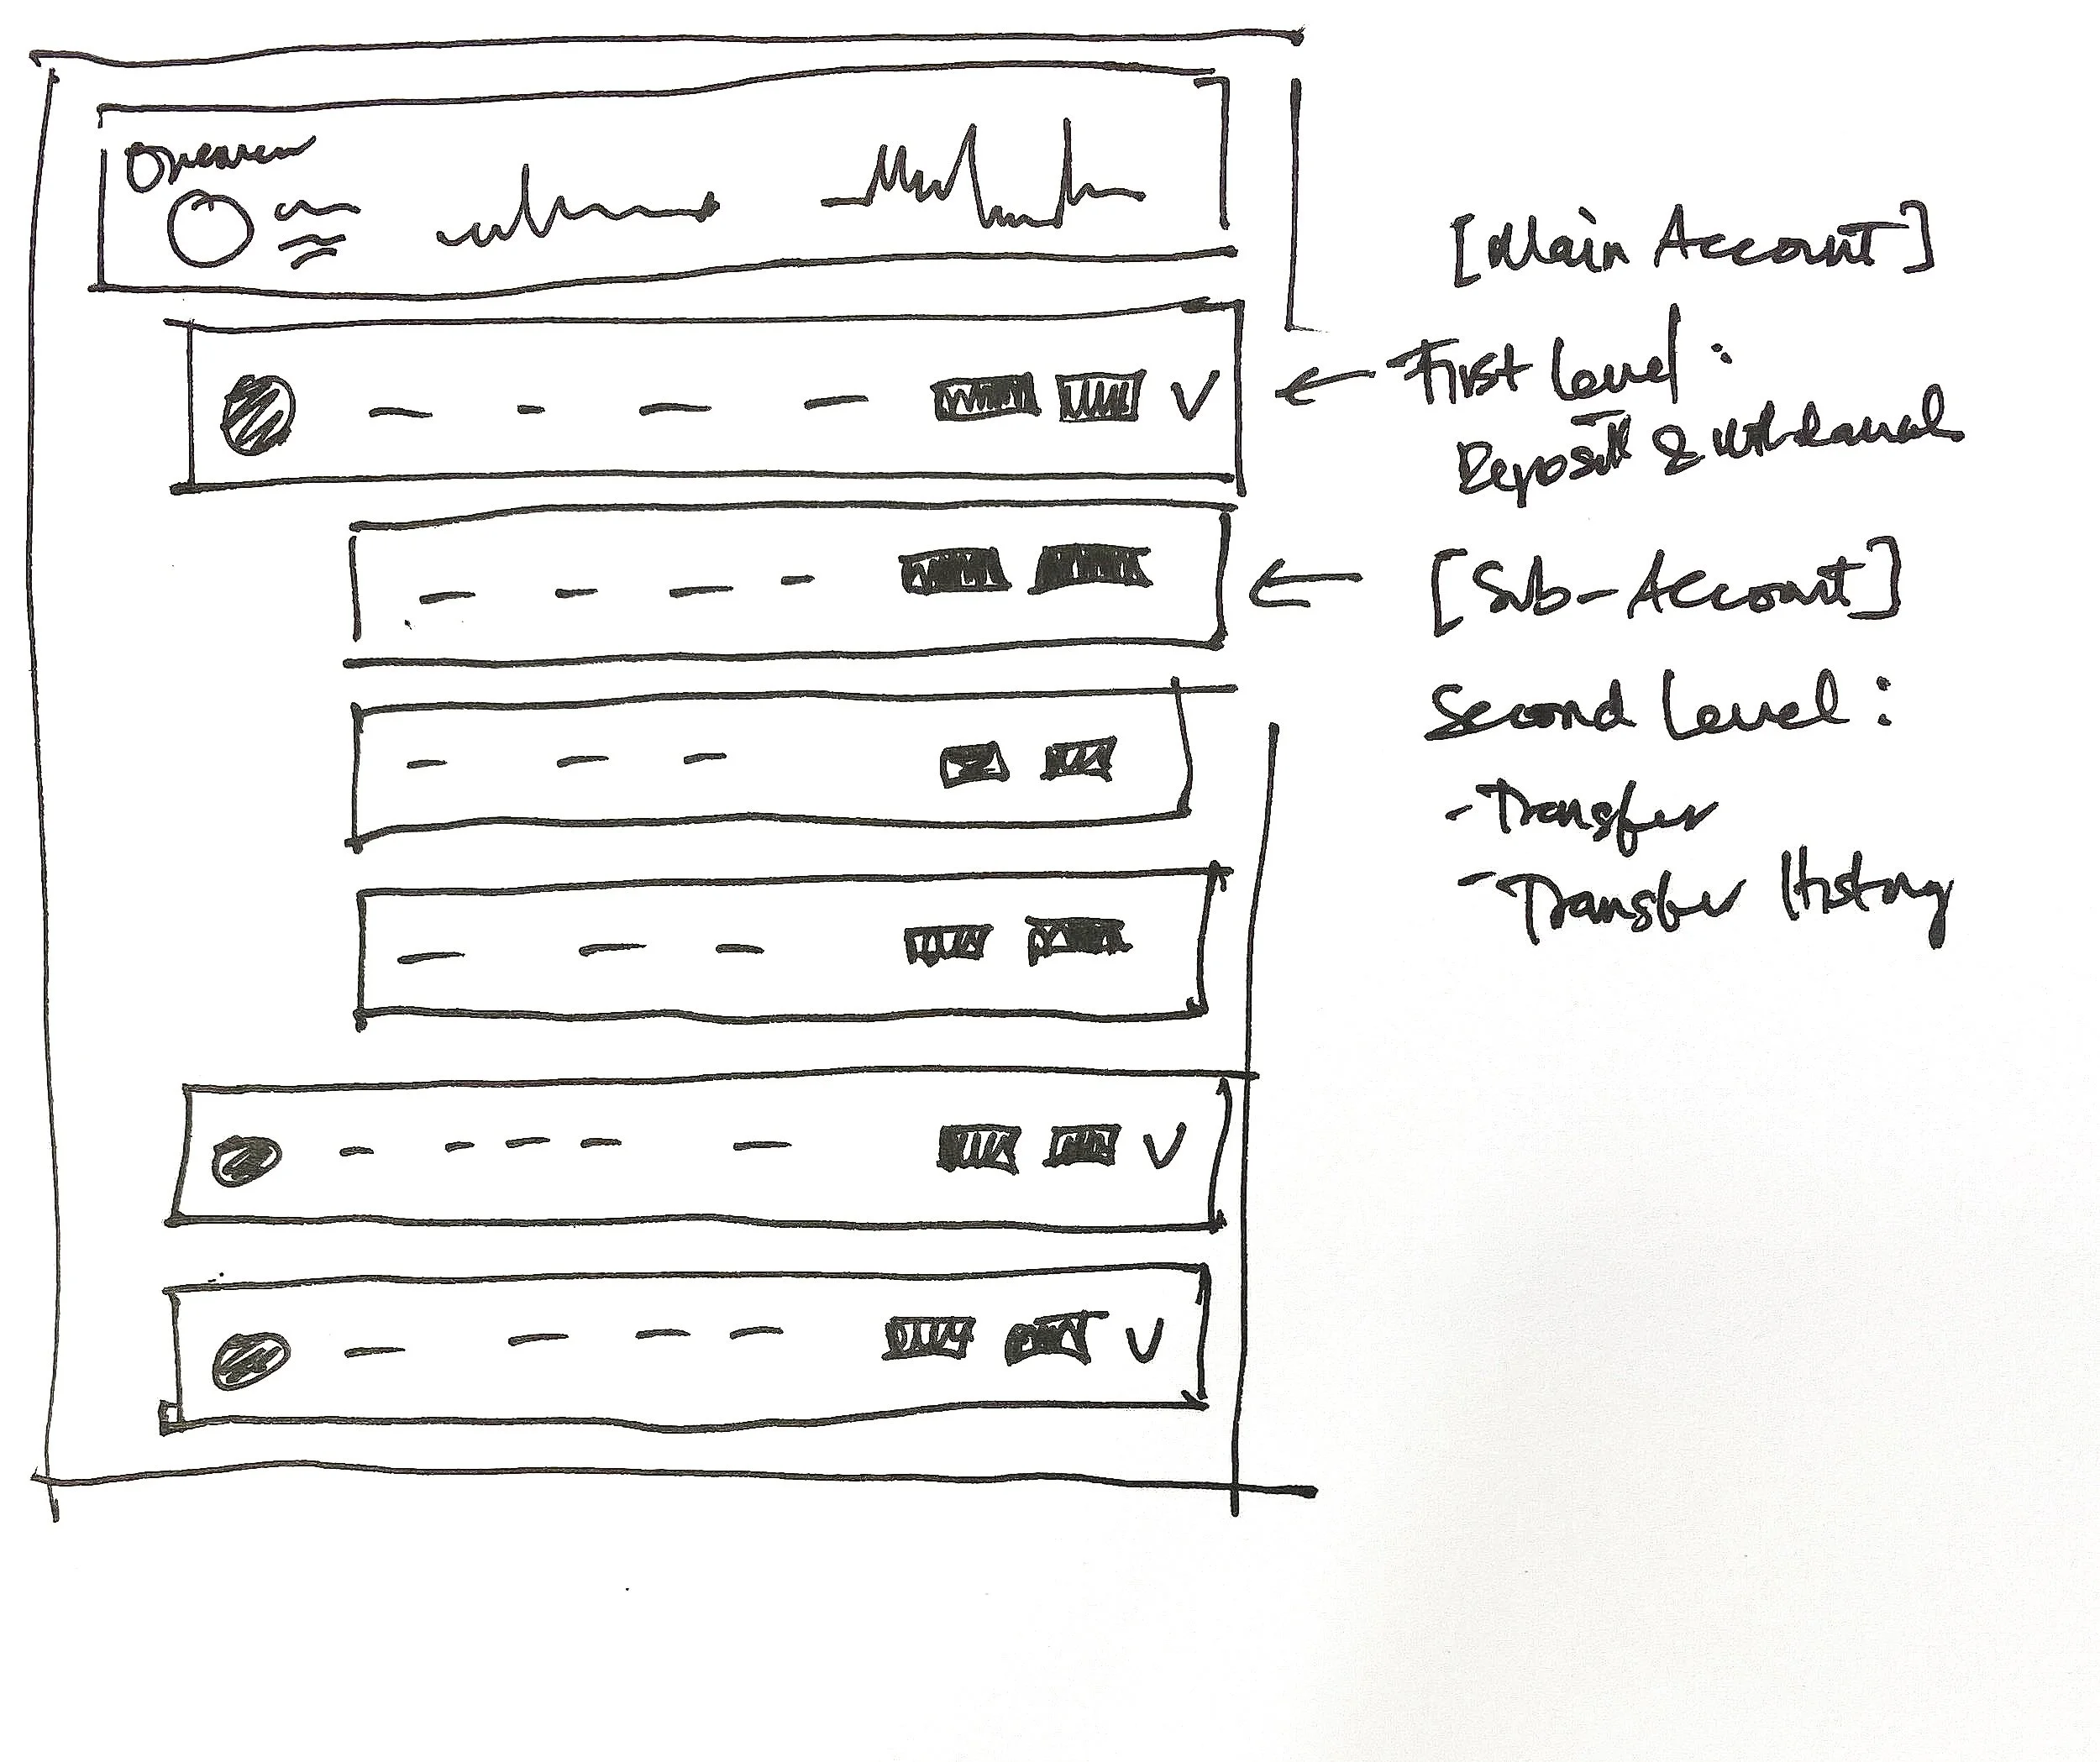 Overview
[Main Account]
First Level:
Deposit & Withdrawal
[Sub-Account]
Second Level:
- Transfer
- Transfer History